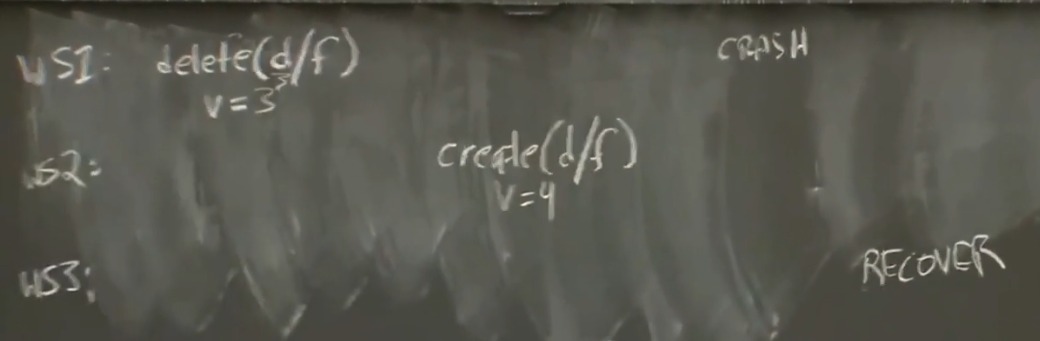 WS1: delete(d/f) CRASH
v=3
WS2: create(d/f)
v=4
WS3: RECOVER